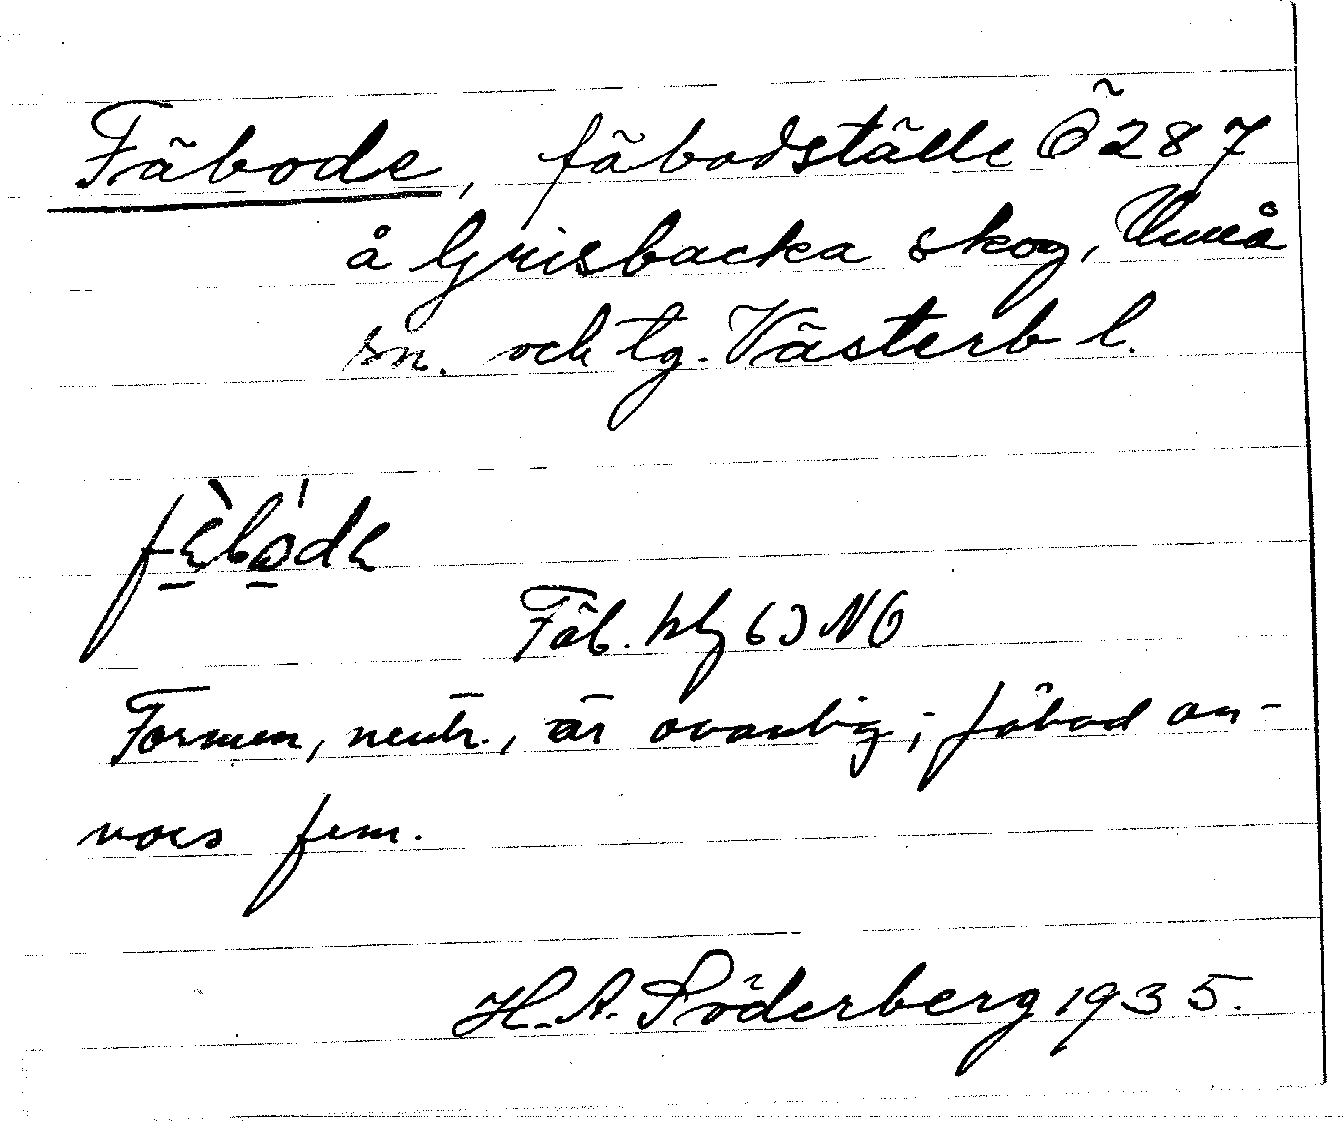 Fäbode, fäbodställe Ö 287
å Grisbacka skog, Umeå
sn. och tg. Västerb l.
fɛ̀bo̱de
Fäb. hlg 63 NÖ
Formen, neutr., är ovanlig; fäbod an-
vars fem.
H. A. Söderberg 1935.